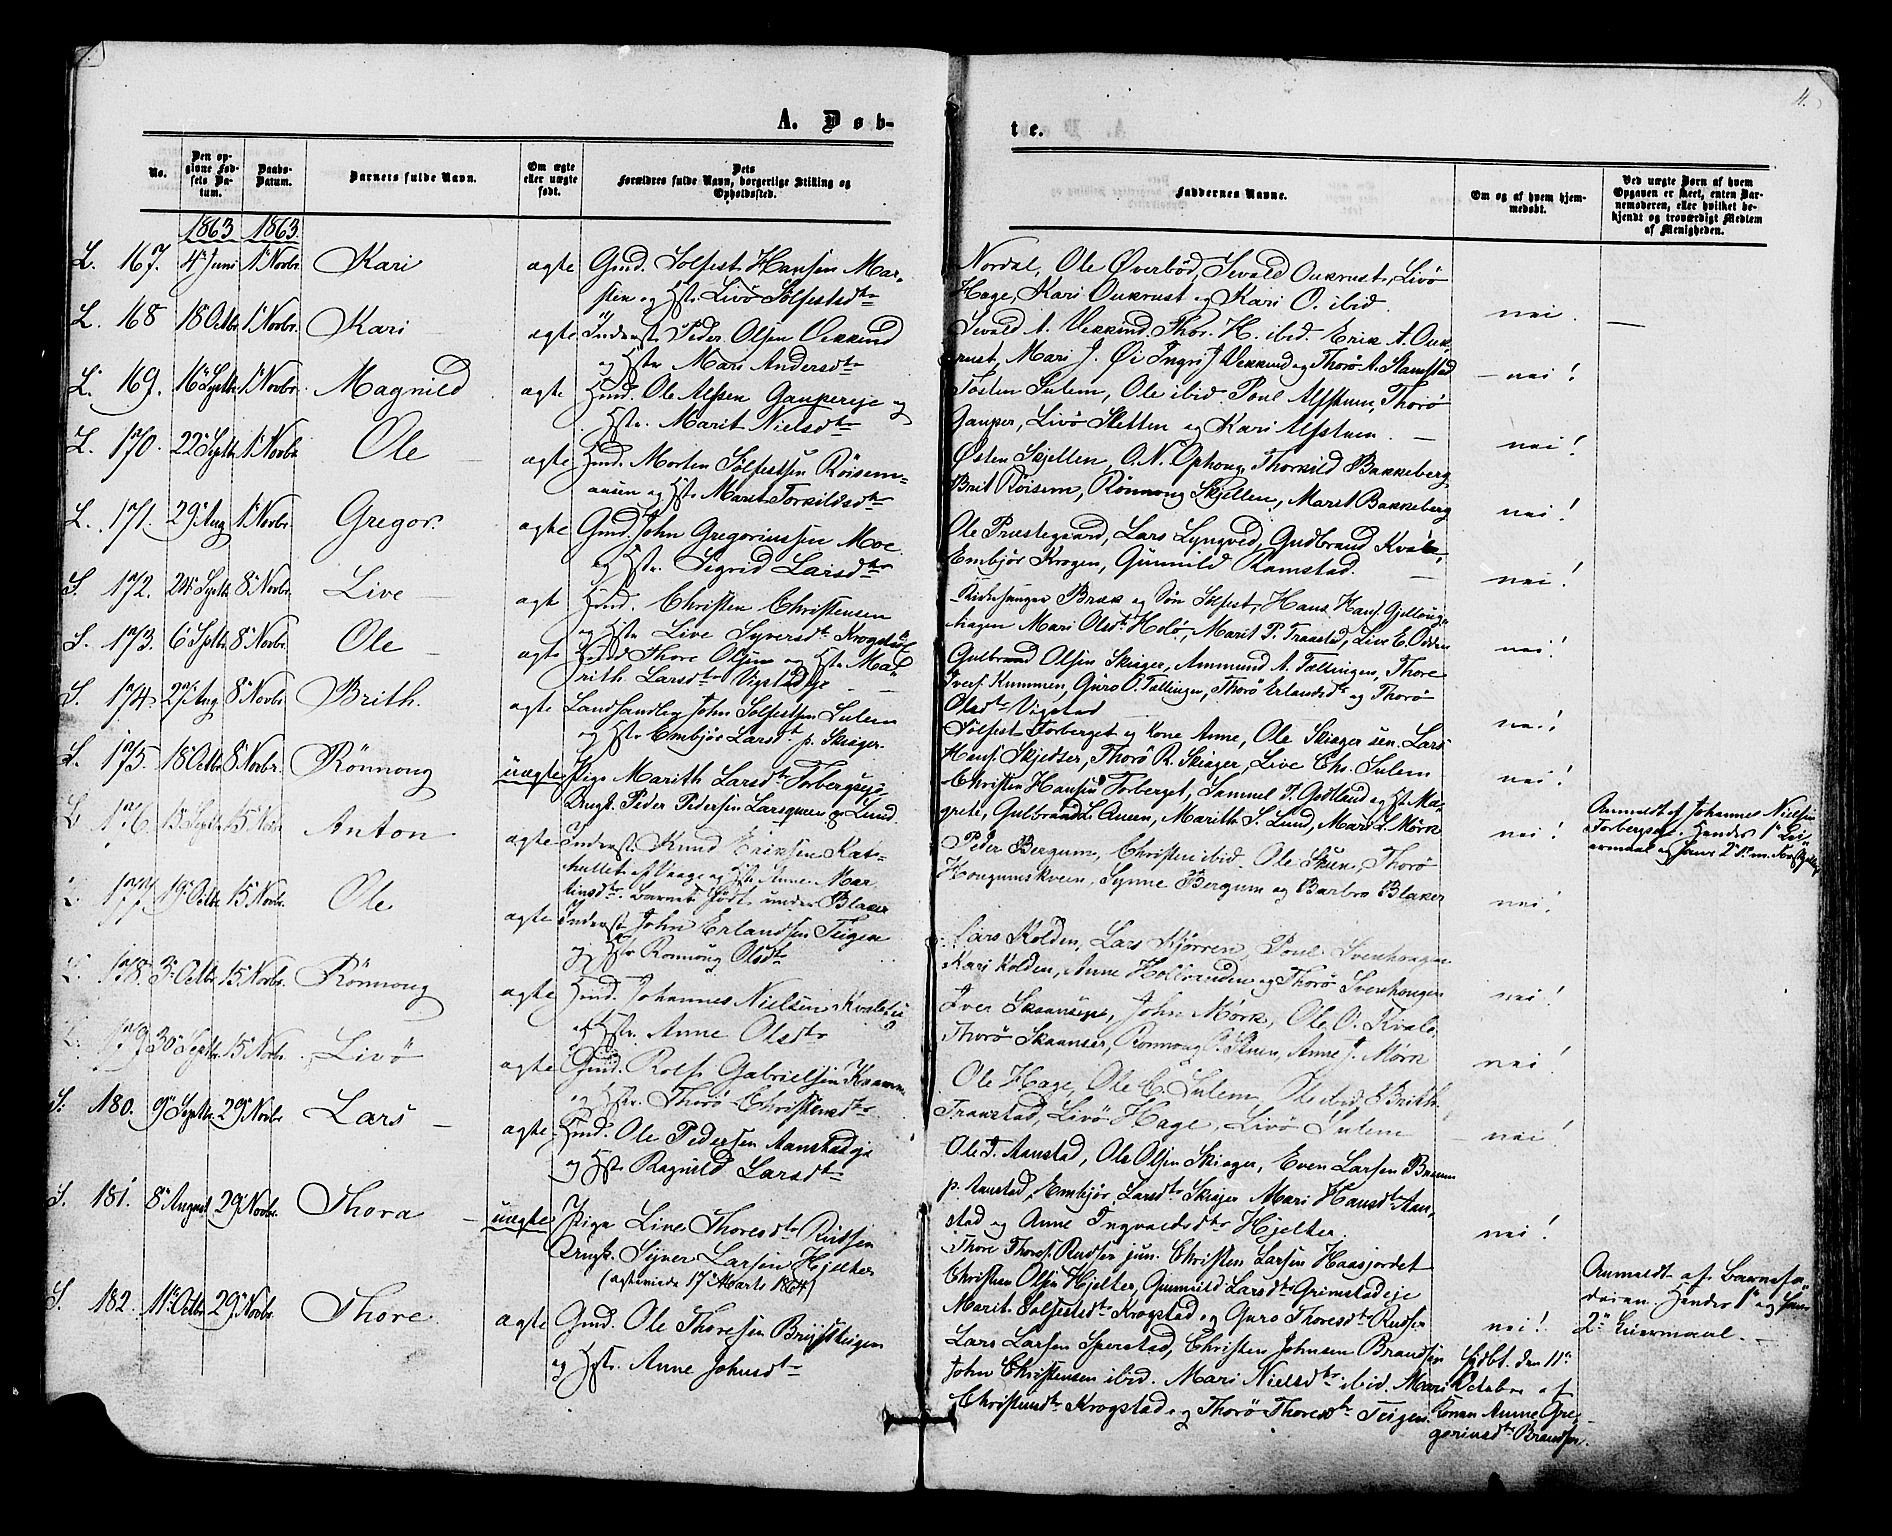 4.
A. Døb-
te.
No.
Den op-
givne Fød-
sels Da-
tum.
Daabs-
Datum.
Barnets fulde Navn.
Om ægte
eller uægte
født.
Dets
Forældres fulde Navn, borgerlige Stilling og
Opholdssted.
Faddernes Navne.
Om og af hvem hjem-
medøbt.
Ved uægte Børn af hvem
Opgaven er skeet, enten Bar-
nemoderen, eller hvilket be-
kjendt og troværdigt Medlem
af Menigheden.
1863 1863
L. 167. 4 Juni 1 Novbr. Kari ægte Gmd. Solfest Hansen Mar-
sten og Hstr. Livö Solfestsdtr
Nordal, Ole Øverbød, Sevald Oukrust, Livö
Hage, Kari Oukrust og Kari O. ibid.
nei.
L. 168 18 Octbr. 1 Novbr. Kari ægte Inderst Peder Olsen Vekkind
og Hstr. Mari Andersdtr
Sevald A. Vekkind Thor. H. ibid. Erik A. Ouk-
rust, Mari J. Øi Ingri J Vekkind og Thorö A. Stamstad
nei!
L. 169. 16 Septbr. 1 Novbr. Magnild ægte Hmd. Ole Alfsen Gaupereje og
Hstr. Marit Nielsdtr
Tosten Sulem, Ole ibid. Poul Alfstuen, Thorö
Gauper, Livö Sletten og Kari Alfstuen.
nei!
L. 170. 22 Septbr. 1 Novbr. Ole ægte Hmd. Morten Solfestsen Röisem-
ousen og Hstr. Marit Torkildsdtr
Østen Skjellen, O. N. Ophoug, Thorkild Bakkeberg
Brit Röisem, Rönnoug Skjellen, Marit Bakkeberg
nei!
L. 171. 29 Aug. 1 Novbr. Gregor. ægte Gmd. John Gregoriussen Moe
og Hstr. Sigrid Larsdtr
Ole Præstegaard, Lars Lyngved, Gudbrand Kvale,
Embjör Krogen, Gunnild Ramstad.
nei!
S. 172. 24 Septbr. 8 Novbr. Live ægte Hmd. Christen Christensen
og Hstr. Live Syversdtr Krogstad
Kirkesanger Bræk og Søn Solfest, Hans Hans.
hagen Mari Olsdtr Holö, Marit P. Traastad, Live E. Odden
nei!
S. 173. 6 Septbr. 8 Novbr. Ole ægte Thore Olsen og Hstr. Ma-
rith Larsdtr Vigstadeje
Gulbrand Olsen Skiager, Ammund A. Tællingen, Thore
Ivers. Kummen, Guro O. Tællingen, Thorö Erlandsdtr og Thorö
Olsdtr Vigstad
nei!
S. 174 27 Aug. 8 Novbr. Brith. ægte Landhandler John Solfestsen Sulem
og Hstr. Embjör Larsdtr p. Skiager.
Solfest Forberget og Kone Anne, Ole Skiager sen. Lars
Hans. Skjedser, Thorö R. Skiager, Live Chr. Sulem
nei!
S. 175. 18 Octbr. 8 Novbr. Rönnoug uægte Pige Marith Larsdtr Forbergseje
Ungk. Peder Pedersen Larsqueen og Lund.
Christen Hansen Forberget, Samuel T. Godtland og Hst. Ma-
grete, Gulbrand L. Queen, Marith S. Lund, Mari L. Mörk
nei!
Anmeldt af Johannes Nielsen
Forbergseie. Hendes 1 Lei-
ermaal og hans 2
L 176. 15 Septbr. 15 Novbr. Anton ægte Inderst. Knud Eriksen Kat-
hullet af Vaage og Hstr. Anne Mar
tinsdtr. Barnet født under Blaker
Peder Bergum, Christen ibid. Ole Skien, Thorö
Hougumskveen, Synne Bergum og Barbro Blaker
nei.
177. 19 Octbr. 15 Novbr. Ole ægte Inderst. John Erlandsen Teigen
og Hstr Ronnoug Olsdtr
Lars Kolden, Lars Kjörren, Poul Svenhougen
Kari Kolden, Anne Holbruden og Thorö Svenhougen
nei!
178. 3 Octbr. 15 Novbr. Rönnoug ægte Hmd. Johannes Nielsen Kvaleeie
og Hstr. Anne Olsdtr
Iver Skaanseje, John Mörk, Ole O. Kvale,
Thorö Skaanser, Ronnoug Skien, Anne J. Mörk
nei!
179 30 Septbr. 15 Novbr. Livö ægte Gmd. Rolf Gabrielsen
og Hstr. Thorö Christensdtr
Ole Hage, Ole C. Sulem, Ole ibid Brith
Traastad, Livö Hage, Livö Sulem
nei!
S. 180. 9 Septbr. 29 Novbr. Lars ægte Hmd. Ole Pedersen Aanstadeje
og Hstr Ragnild Larsdtr
Ole T. Aanstad, Ole Olsen Skiager, Even Larsen
p. Aanstad, Embjör Larsdtr Skiager Mari Hansdtr Aan-
stad og Anne Ingvaldsdtr Hjelter.
nei!
S. 181. 8 August 29 Novbr. Thora uægte Pige Live Thoresdtr Rudsen
Ungk. Syver Larsen Hjelter
(ægteviede 17 Marts 1864)
Thore Thors. Rudsen jun. Christen Larsen Haasjordet
Christen Olsen Hjelter, Gunnild Larsdtr Grimstadeje
Marit Solfestdtr Krogstad og Guro Thoresdtr Rudsen
nei!
Anmeldt af Barnefa-
deren. Hendes 1 og hans
2 Leiermaal.
S. 182. 11 Octbr 29 Novbr. Thore ægte Gmd. Ole Thoresen Brysteigen
og Hstr. Anne Johnsdtr
Lars Larsen Sperstad, Christen Johnsen Brandsen
John Christensen ibid. Mari Nielsdtr ibid. Mari
Christensdtr Krogstad og Thorö Thoresdtr Teigen
hjdbt. den 11
October af
Konen Anne Gre-
goriusdtr Brandsar.